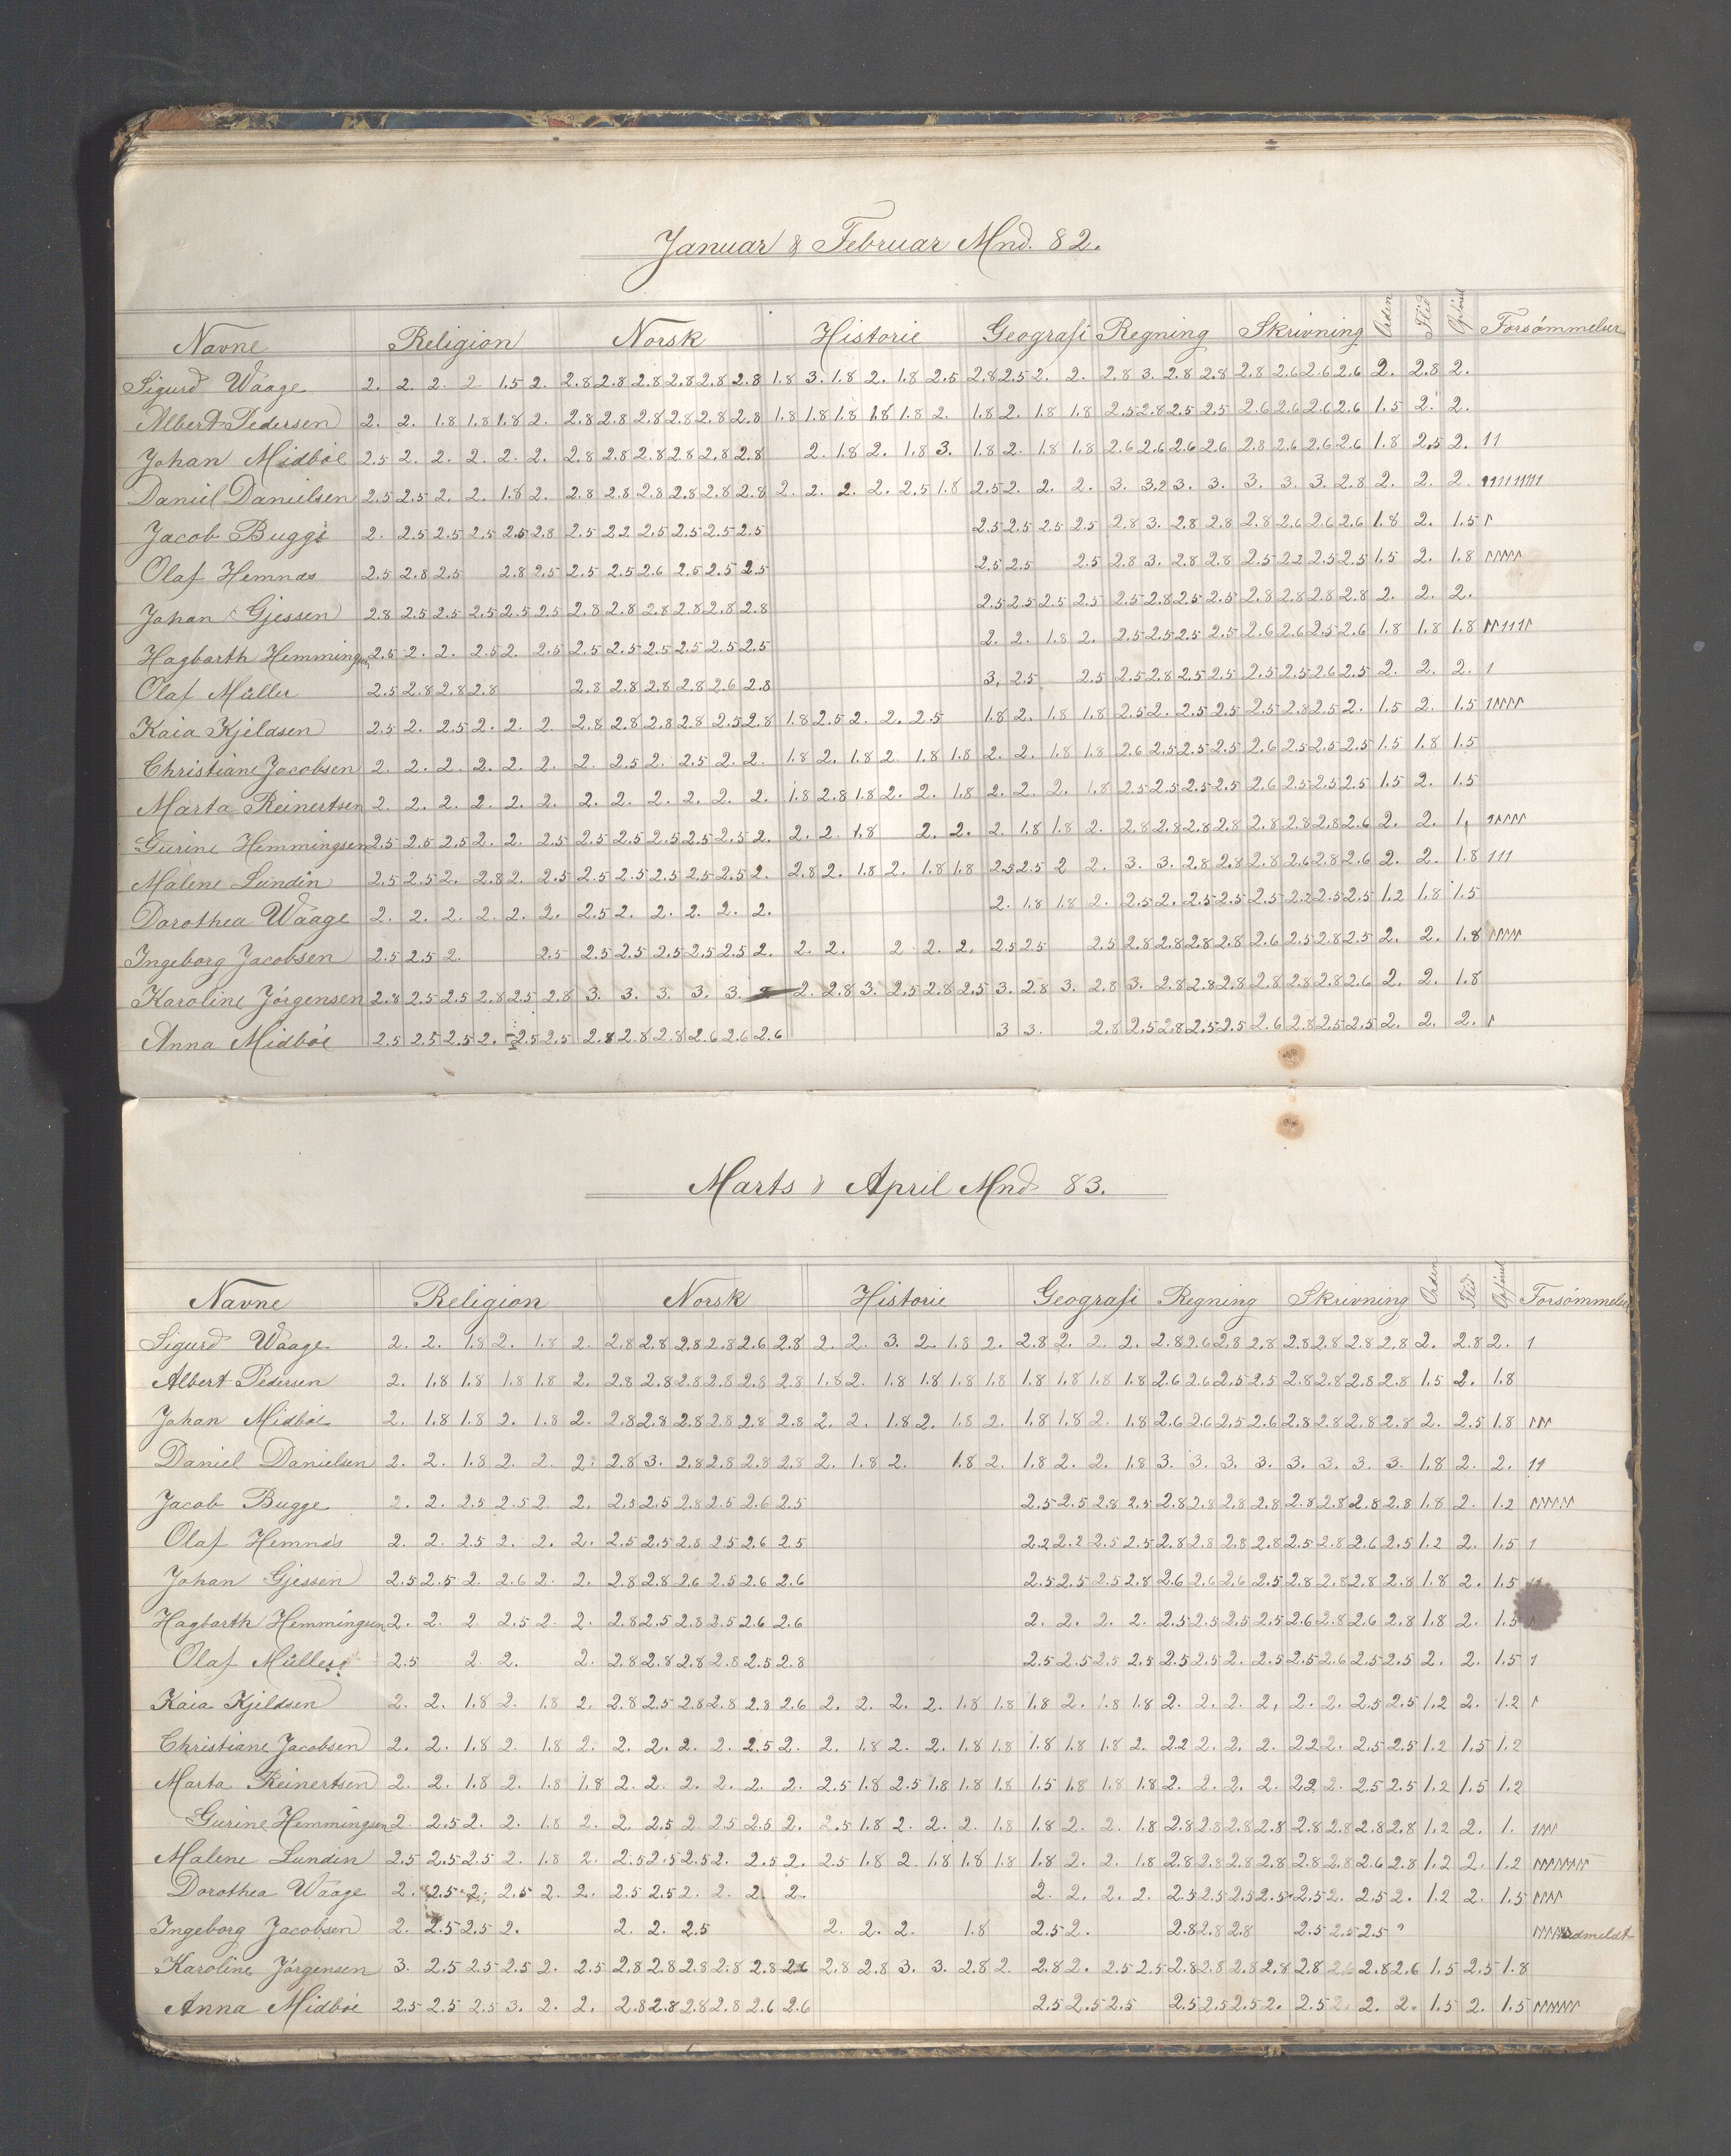 Januar & Februar Mnd. 82.
Navne Religion Norsk Historie Geografi Regning Skrivning Orden Flid Opførsel Forsømmelser
Sigurd Waage 2. 2. 2. 2 1.5 2. 2.8 2.8 2.8 2.8 2.8 2.8 1.8 3. 1.8 2. 1.8 2.5 2.8 2.5 2. 2. 2.8 3. 2.8 2.8 2.8 2.6 2.6 2.6 2. 2.8 2.
Albert Pedersen 2. 2. 1.8 1.8 1.8 2. 2.8 2.8 2.8 2.8 2.8 2.8 1.8 1.8 1.8 1.8 1.8 2. 1.8 2. 1.8 1.8 2.5 2.8 2.5 2.5 2.6 2.6 2.6 2.6 1.5 2. 2.
Johan Midbøe 2.5 2. 2. 2. 2. 2. 2.8 2.8 2.8 2.8 2.8 2.8 2. 1.8 2. 1.8 3. 1.8 2. 1.8 1.8 2.6 2.6 2.6 2.6 2.8 2.6 2.6 2.6 1.8 2.5 2. 11
Daniel Danielsen 2.5 2.5 2. 2. 1.8 2. 2.8 2.8 2.8 2.8 2.8 2.8 2. 2. 2. 2. 2.5 1.8 2.5 2. 2. 2. 3. 3.2 3. 3. 3. 3. 3. 2.8 2. 2. 2.
Jacob Bugge 2. 2.5 2.5 2.5 2.5 2.8 2.5 2.2 2.5 2.5 2.5 2.5 2.5 2.5 2.5 2.5 2.8 3. 2.8 2.8 2.8 2.6 2.6 2.6 1.8 2. 1.5 1
Olaf Hemnæs 2.5 2.8 2.5 2.8 2.5 2.5 2.5 2.6 2.5 2.5 2.5 2.5 2.5 2.5 2.8 3. 2.8 2.8 2.5 2.2 2.5 2.5 1.5 2. 1.8 11111
Johan Gjessen 2.8 2.5 2.5 2.5 2.5 2.5 2.8 2.8 2.8 2.8 2.8 2.8 2.5 2.5 2.5 2.5 2.5 2.8 2.5 2.5 2.8 2.8 2.8 2.8 2. 2. 2.
Hagbarth Hemmingsen 2.5 2. 2. 2.5 2. 2.5 2.5 2.5 2.5 2.5 2.5 2.5 2. 2. 1.8 2. 2.5 2.5 2.5 2.5 2.6 2.6 2.5 2.6 1.8 1.8 1.8
Olaf Müller 2.5 2.8 2.8 2.8 2.8 2.8 2.8 2.8 2.6 2.8 3. 2.5 2.5 2.5 2.8 2.5 2.5 2.5 2.5 2.6 2.5 2. 2. 2. 1
Kaia Kjeldsen 2.5 2. 2.5 2. 2. 2. 2.8 2.8 2.8 2.8 2.5 2.8 1.8 2.5 2. 2. 2.5 1.8 2. 1.8 1.8 2.5 2. 2.5 2.5 2.5 2.8 2.5 2. 1.5 2. 1.5 11111
Christiane Jacobsen 2. 2. 2. 2. 2. 2. 2. 2.5 2. 2.5 2. 2. 1.8 2. 1.8 2. 1.8 1.8 2. 2. 1.8 1.8 2.6 2.5 2.5 2.5 2.6 2.5 2.5 2.5 1.5 1.8 1.5
Marta Reinertsen 2. 2. 2. 2. 2. 2. 2. 2. 2. 2. 2. 2. 1.8 2.8 1.8 2. 2. 1.8 2. 2. 2. 1.8 2.5 2.5 2.5 2.5 2.6 2.5 2.5 2.5 1.5 2. 1.5
Gurine Hemmingsen 2.5 2.5 2.5 2. 2. 2.5 2.5 2.5 2.5 2.5 2.5 2. 2. 2. 1.8 2. 2. 2. 1.8 1.8 2. 2.8 2.8 2.8 2.8 2.8 2.8 2.8 2.6 2. 2. 1. 11111
Malene Lundin 2.5 2.5 2. 2.8 2. 2.5 2.5 2.5 2.5 2.5 2.5 2. 2.8 2. 1.8 2. 1.8 1.8 2.5 2.5 2 2. 3. 3. 2.8 2.8 2.8 2.6 2.8 2.6 2. 2. 1.8 111
Dorothea Waage 2. 2. 2. 2. 2. 2. 2.5 2. 2. 2. 2. 2. 2. 1.8 1.8 2. 2.5 2. 2.5 2.5 2.5 2.2 2.5 2.5 1.2 1.8 1.5
Ingeborg Jacobsen 2.5 2.5 2. 2.5 2.5 2.5 2.5 2.5 2.5 2. 2. 2. 2 2. 2. 2.5 2.5 2.5 2.8 2.8 2.8 2.8 2.6 2.5 2.8 2.5 2. 2. 1.8 11111
Karoline Jørgensen 2.8 2.5 2.5 2.8 2.5 2.8 3. 3. 3. 3. 3. 2. 2.8 3. 2.5 2.8 2.5 3. 2.8 3. 2.8 3. 2.8 2.8 2.8 2.8 2.8 2.8 2.6 2. 2. 1.8
Anna Midbøe 2.5 2.5 2.5 2. 2.5 2.5 2.8 2.8 2.8 2.6 2.6 2.6 3 3. 2.8 2.5 2.8 2.5 2.5 2.6 2.8 2.5 2.5 2. 2. 2. 1
Marts & April Mnd 83.
Navne Religion Norsk Historie Geografi Regning Skrivning Orden Flid Opførsel Forsømmelser
Sigurd Waage 2. 2. 1.8 2. 1.8 2. 2.8 2.8 2.8 2.8 2.6 2.8 2. 2. 3. 2. 1.8 2. 2.8 2. 2. 2. 2.8 2.6 2.8 2.8 2.8 2.8 2.8 2.8 2. 2.8 2. 1
Albert Pedersen 2. 1.8 1.8 1.8 1.8 2. 2.8 2.8 2.8 2.8 2.8 2.8 1.8 2. 1.8 1.8 1.8 1.8 1.8 1.8 1.8 1.8 2.6 2.6 2.5 2.5 2.8 2.8 2.8 2.8 1.5 2. 1.8
Johan Midbøe 2. 1.8 1.8 2. 1.8 2. 2.8 2.8 2.8 2.8 2.8 2.8 2. 2. 1.8 2. 1.8 2. 1.8 1.8 2. 1.8 2.6 2.6 2.5 2.6 2.8 2.8 2.8 2.8 2. 2.5 1.8 111
Daniel Danielsen 2. 2. 1.8 2. 2. 2. 2.8 3. 2.8 2.8 2.8 2.8 2. 1.8 2. 1.8 2. 1.8 2. 2. 1.8 3. 3. 3. 3. 3. 3. 3. 3. 1.8 2. 2. 11
Jacob Bugge 2. 2. 2.5 2.5 2. 2. 2.5 2.5 2.8 2.5 2.6 2.5 2.5 2.5 2.8 2.5 2.8 2.8 2.8 2.8 2.8 2.8 2.8 2.8 1.8 2. 1.2
Olaf Hemnæs 2. 2. 2.5 2. 2. 2. 2.5 2.5 2.8 2.5 2.6 2.5 2.2 2.2 2.5 2.5 2.8 2.8 2.8 2.8 2.5 2.8 2.6 2.5 1.2 2. 1.5 1
Johan Gjessen 2.5 2.5 2. 2.6 2. 2. 2.8 2.8 2.6 2.5 2.6 2.6 2.5 2.5 2.5 2.8 2.6 2.6 2.6 2.5 2.8 2.8 2.8 2.8 1.8 2. 1.5
Hagbarth Hemmingsen 2. 2. 2. 2.5 2. 2. 2.8 2.5 2.8 2.5 2.6 2.6 2. 2. 2. 2. 2.5 2.5 2.5 2.5 2.6 2.8 2.6 2.8 1.8 2. 1.5
Olaf Müller 2.5 2. 2. 2. 2.8 2.8 2.8 2.8 2.5 2.8 2.5 2.5 2.5 2.5 2.5 2.5 2. 2.5 2.5 2.6 2.5 2.5 2. 2. 1.5 1
Kaia Kjeldsen 2. 2. 1.8 2. 1.8 2. 2.8 2.5 2.8 2.8 2.8 2.6 2. 2. 2. 2. 1.8 1.8 1.8 2. 1.8 1.8 2. 2. 2. 2. 2. 2. 2.5 2.5 1.2 2. 1.2 1
Christiane Jacobsen 2. 2. 1.8 2. 1.8 2. 2. 2. 2. 2. 2.5 2. 2. 1.8 2. 2. 1.8 1.8 1.8 1.8 1.8 2. 2.2 2. 2. 2. 2.2 2. 2.5 2.5 1.2 1.5 1.2
Marta Reinertsen 2. 2. 1.8 2. 1.8 1.8 2. 2. 2. 2. 2. 2. 2.5 1.8 2.5 1.8 1.8 1.8 1.5 1.8 1.8 1.8 2. 2. 2. 2. 2.2 2. 2.5 2.5 1.2 1.5 1.2
Gurine Hemmingsen 2. 2.5 2. 2. 1.8 2. 2. 2.5 2. 2.5 2.5 2. 2.5 1.8 2. 2. 2. 1.8 1.8 2. 2. 1.8 2.8 2.8 2.8 2.8 2.8 2.8 2.8 2.8 1.2 2. 1. 1111
Malene Lundin 2.5 2.5 2.5 2. 1.8 2. 2.5 2.5 2.5 2. 2.5 2. 2.5 1.8 2. 1.8 1.8 1.8 1.8 2. 2. 1.8 2.8 2.8 2.8 2.8 2.8 2.8 2.6 2.8 1.2 2. 1.2
Dorothea Waage 2. 2.5 2. 2.5 2. 2. 2.5 2.5 2. 2. 2. 2. 2. 2. 2. 2. 2.5 2.5 2.5 2.5 2.5 2. 2.5 2. 1.2 2. 1.5 1111
Ingeborg Jacobsen 2. 2.5 2.5 2. 2. 2. 2.5 2. 2. 2. 1.8 2.5 2. 2.8 2.8 2.8 2.5 2.5 2.5 udmeldt
Karoline Jørgensen 3. 2.5 2.5 2.5 2. 2.5 2.8 2.8 2.8 2.8 2.8 2.6 2.8 2.8 3. 3. 2.8 2. 2.8 2. 2.5 2.5 2.8 2.8 2.8 2.8 2.8 2.6 2.8 2.6 1.5 2.5 1.8
Anna Midbøe 2.5 2.5 2.5 3. 2. 2. 2.8 2.8 2.8 2.8 2.6 2.6 2.5 2.5 2.5 2.5 2.5 2.5 2. 2.5 2. 2. 2. 1.5 2. 1.5